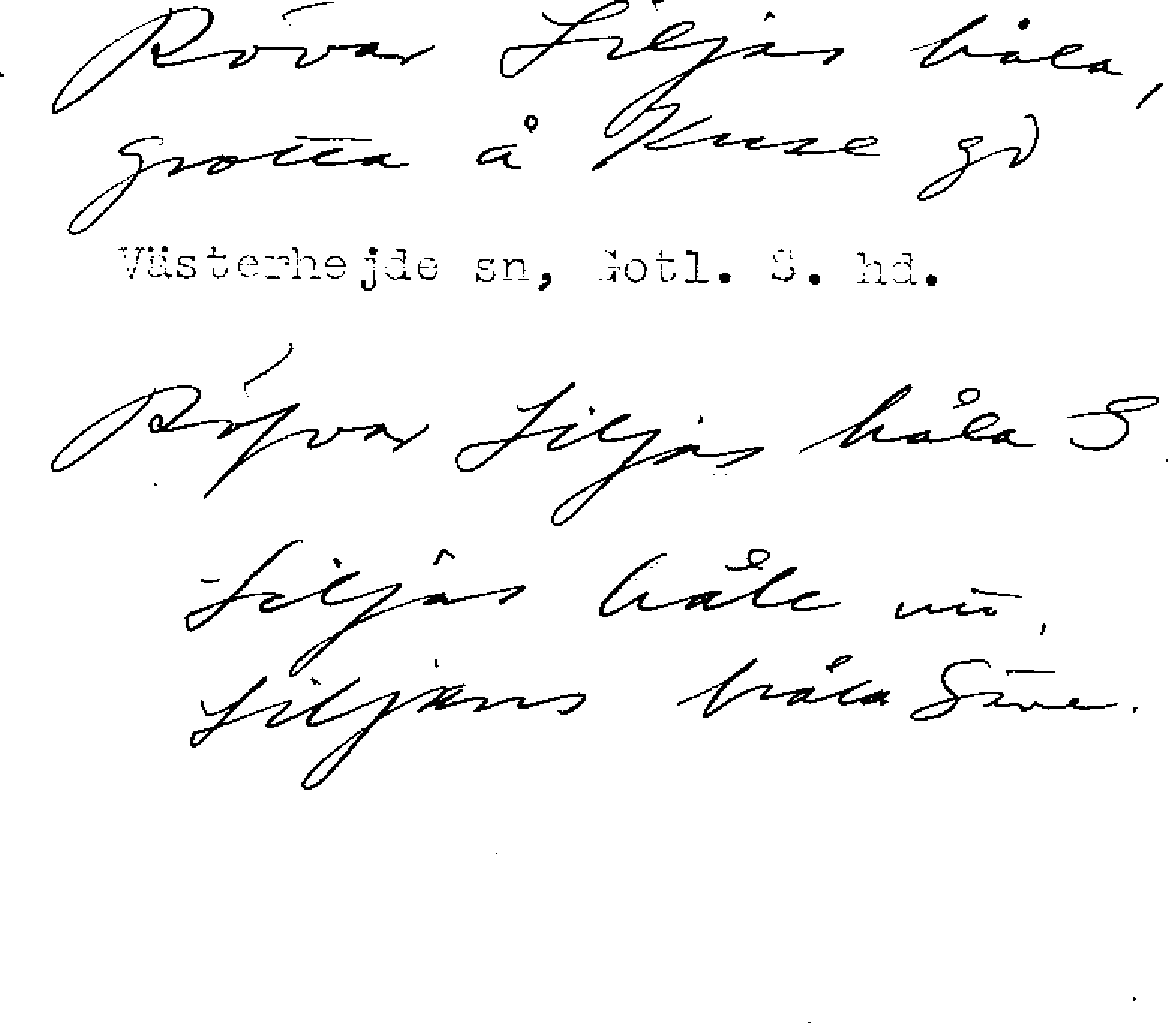 Rövar Liljas håla,
grotta å Kuse gd
Västerhejde sn, Gotl. S. hd.
Röfvar Liljas håla S
Liljas håle
Liljans håla